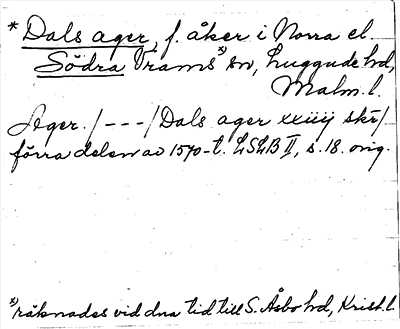 * Dals ager, f. åker i Norra el.
Södra Vrams *) sn, Luggude hd,
Malm. l.
Ager. /---/ Dals ager xxiiij skr/
förra delen av 1570-t. LSLB II, s. 18. orig.
*) räknades vid dna tid till S. Åsbo hd, Krist. l.